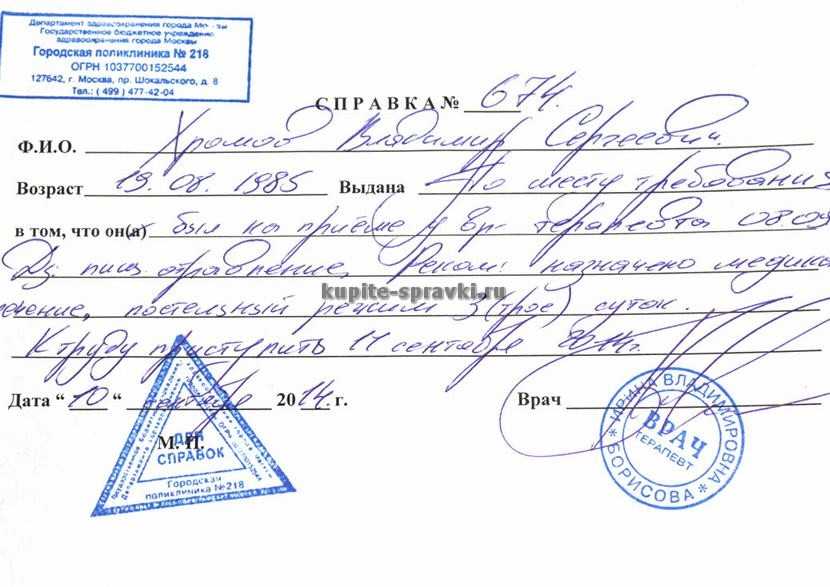 Департамент здравоохранения города Москвы
Государственное бюджетное учреждение
здравоохранения города Москвы
Городская поликлиника № 218
ОГРН 1037700152544
127642, г. Москва, пр. Шокальского, д. 8
Тел.: ( 499 ) 477-42-04
СПРАВКА № 674.
Ф.И.О. Хромов Владимир Сергеевич.
Возраст 19.08.1985 Выдана По месту требования
в том, что он(а) был на приёме у вр- терапевта 08.09
Дз: пищ. отравление, Реком: назначено медика
ечение, постельный режим 3 (трое) суток.
kupite-spravki.ru
К труду приступить 11 сентября 2014г.
Дата “ 10 “ сентября 2014 г. Врач
М. П.
ДЛЯ
СПРАВОК
Городская
поликлиника №218
ИРИНА ВЛАДИМИРОВНА
ВРАЧ
ТЕРАПЕВТ
* БОРИСОВА *